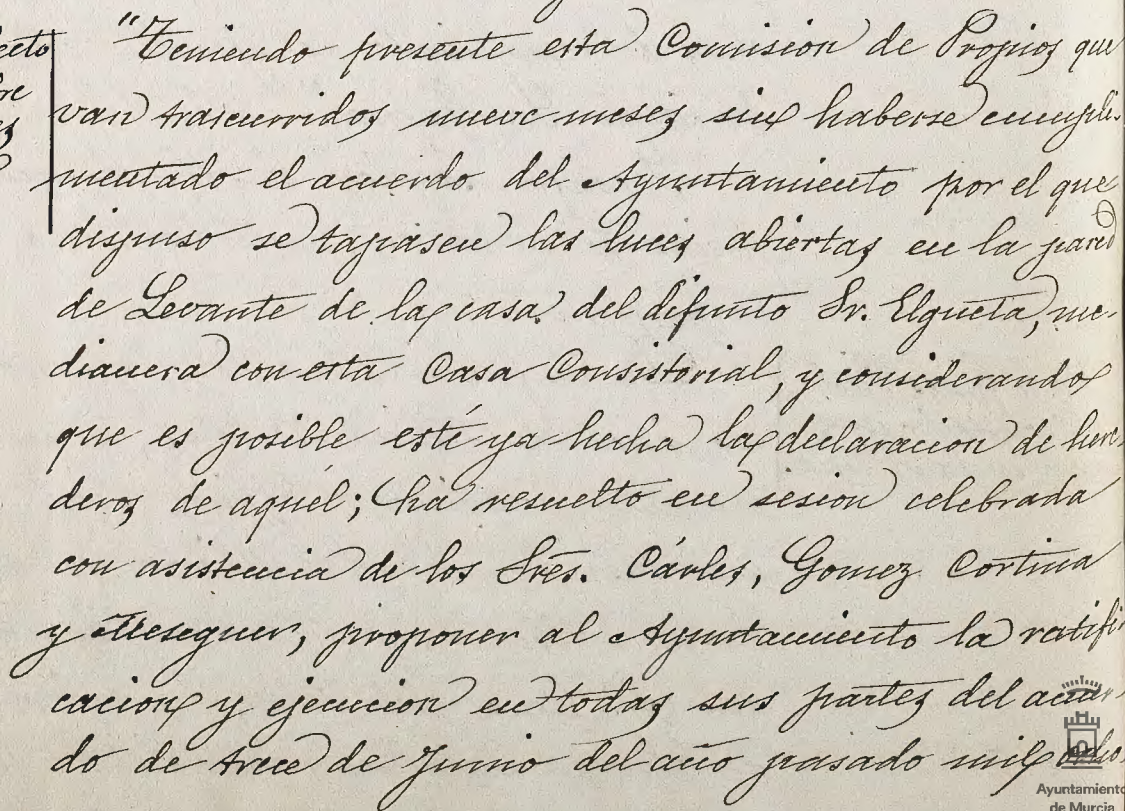 ecto
re
es
"Teniendo presente esta Comision de Propios que
van trascurridos nueve meses sin haberse cumpli-
mentado el acuerdo del Ayuntamiento por el que
dispuso se tapasen las luces abiertas en la pared
de Levante de la casa del difunto Sr. Elgueta, me-
dianera con esta Casa Consistorial, y considerando
que es posible esté ya hecha la declaracion de here-
deros de aquél; ha resuelto en sesion celebrada
con asistencia de los Sres. Cárles, Gomez Cortina
y Meseguer, proponer al Ayuntamiento la ratifi-
cacion y ejecucion en todas sus partes del acuer-
do de trece de Junio del año pasado mil ocho-
Ayuntamiento
de Murcia